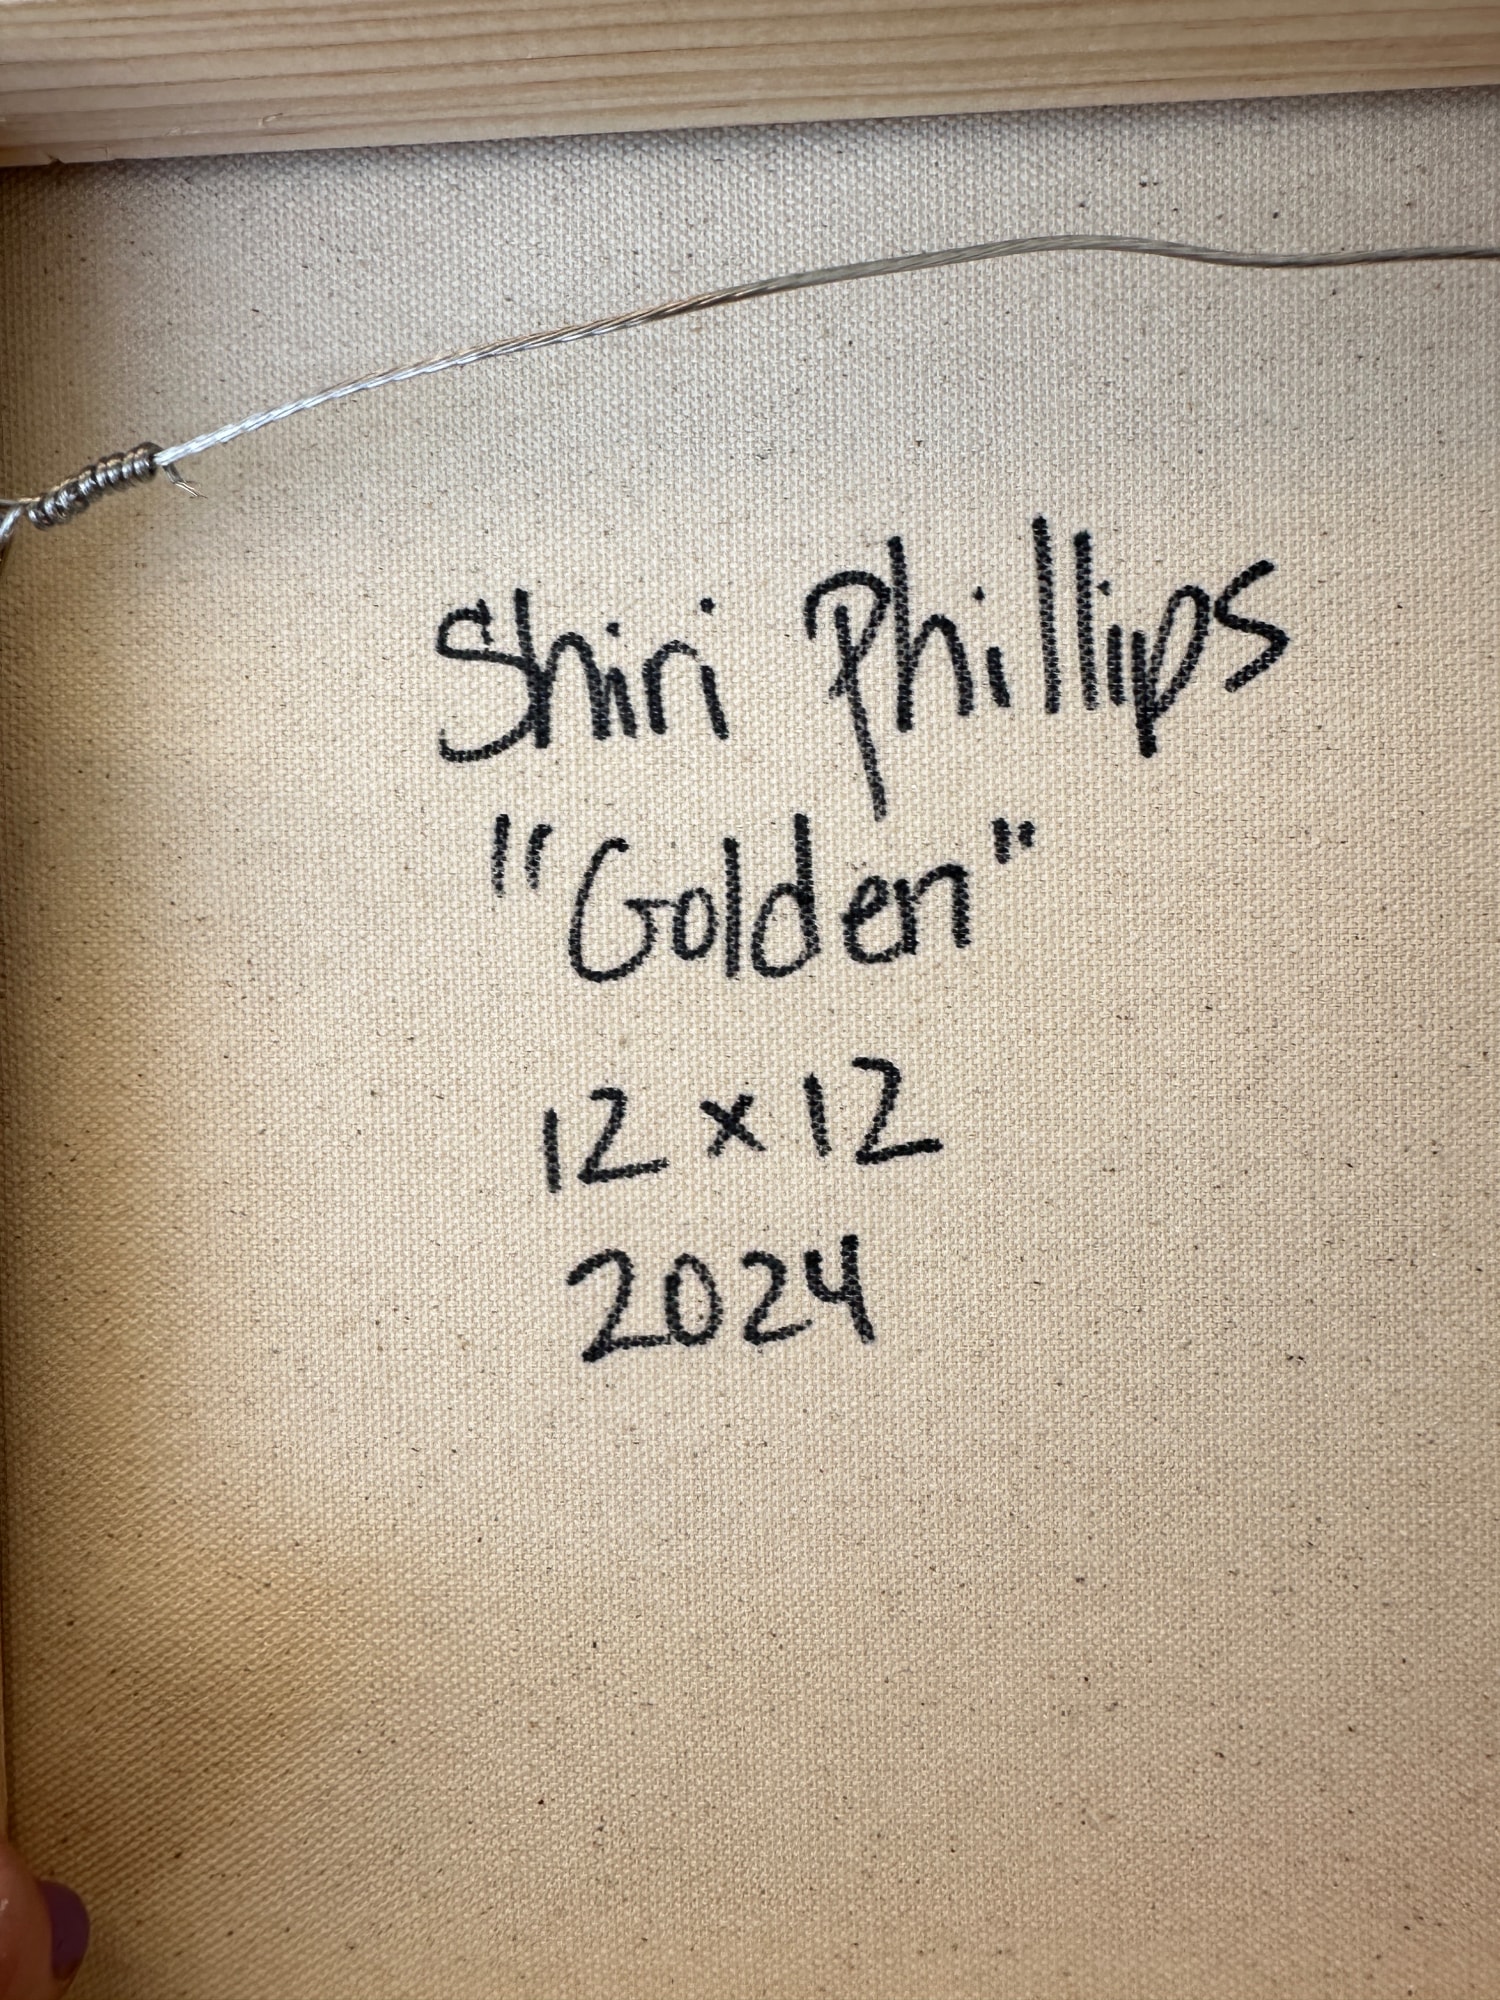 Shiri Phillips
"Golden"
12 x 12
2024